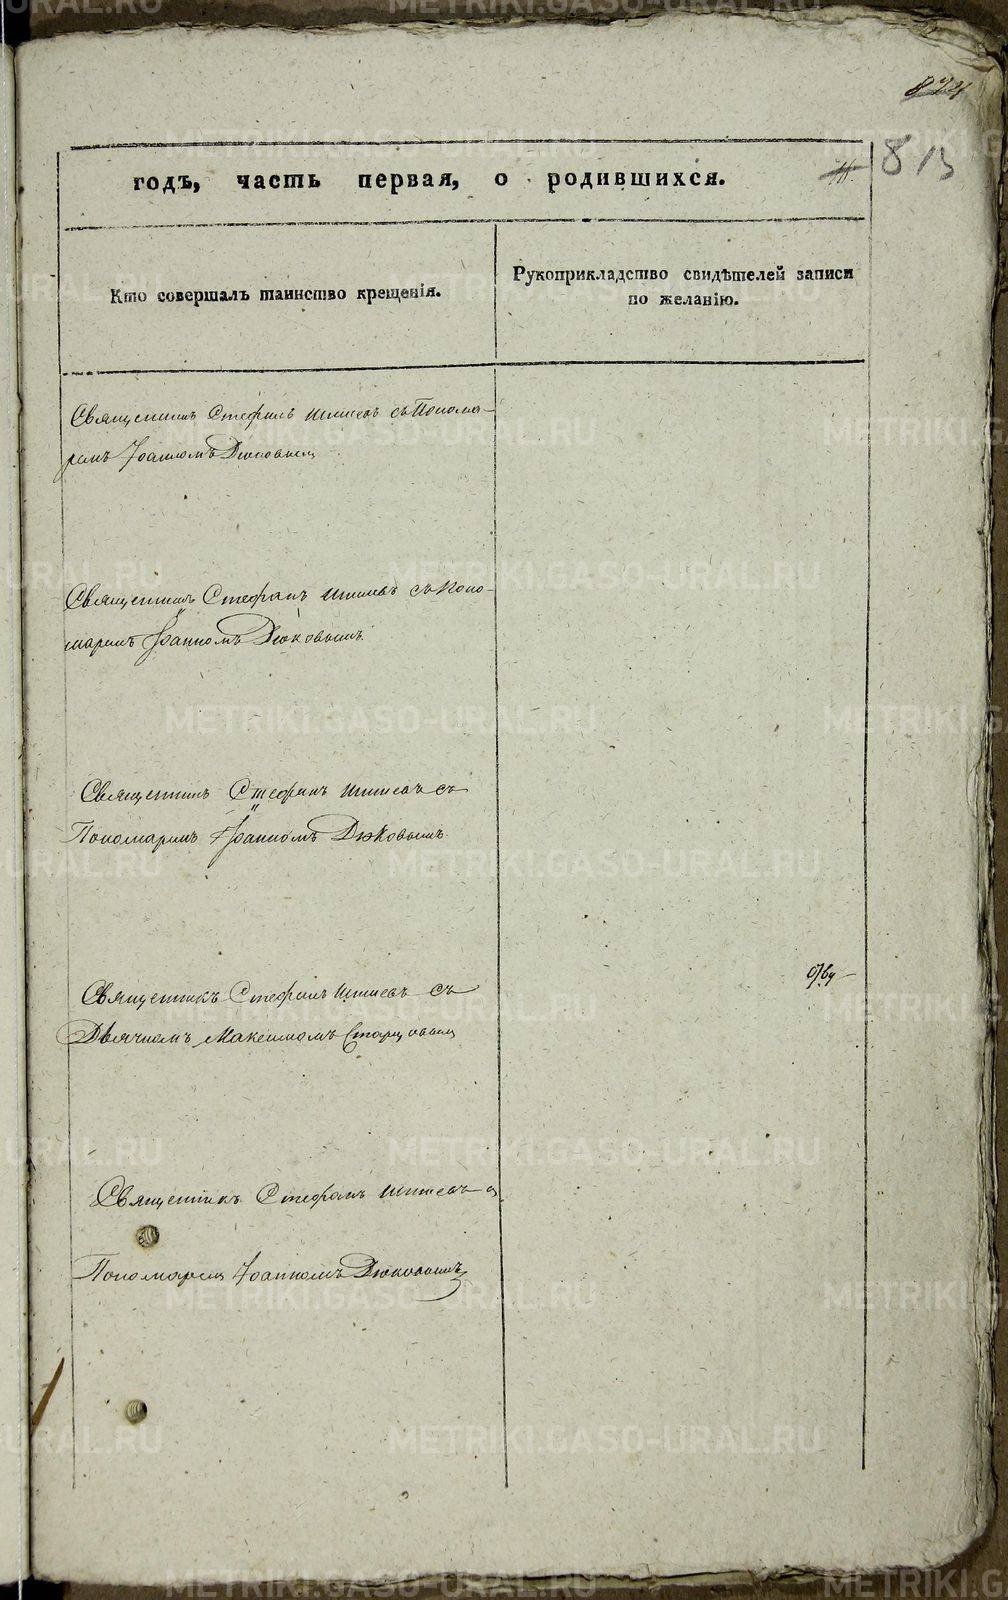 874
813
годъ, часть первая, о родившихся.
Кто совершалъ таинство крещенія.
Рукоприкладство свидѣтелей записи
по желанію.
Священникъ Стефанъ съ Понома-
ремъ Іоанномъ Дюковымъ
Священникъ Стефанъ съ Поно-
маремъ Іоанномъ Дюковымъ
Священникъ Стефанъ съ
Пономаремъ Іоанномъ Дюковымъ
Священникъ Стефанъ съ
Дьячкомъ Максимомъ Старцовымъ
Священникъ Стефанъ съ
Пономаремъ Іоанномъ Дюковымъ
METRIKI.GASO-URAL.RU